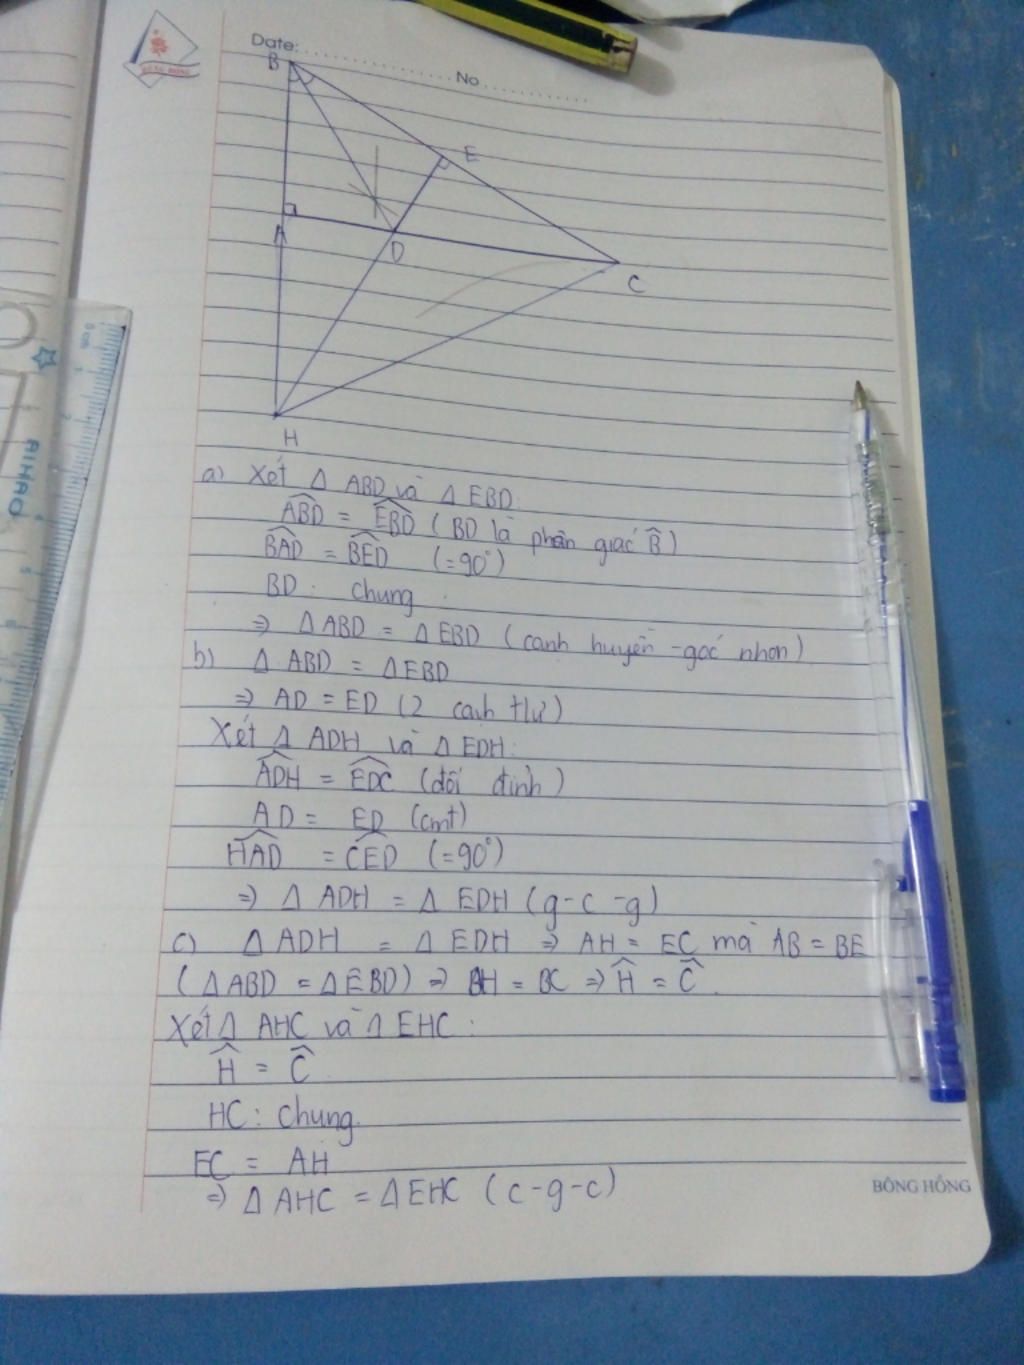 Date: ..................... No ..................
B
E
A
D
C
H
a) Xét Δ ABD và Δ EBD:
ABD = EBD (BD là phân giác B)
BAD = BED (=90°)
BD : chung
⇒ Δ ABD = Δ EBD (cạnh huyền - góc nhọn)
b) Δ ABD = Δ EBD
⇒ AD = ED (2 cạnh tứ)
Xét Δ ADH và Δ EDH:
ADH = EDC (đối đỉnh)
AD = ED (cmt)
HAD = CED (=90°)
⇒ Δ ADH = Δ EDH (g-c-g)
c) Δ ADH = Δ EDH ⇒ AH = EC mà AB = BE
(Δ ABD = Δ EBD) ⇒ BH = BC ⇒ H = C.
Xét Δ AHC và Δ EHC :
H = C
HC : chung
EC = AH
⇒ Δ AHC = Δ EHC (c-g-c)
BÔNG HỒNG